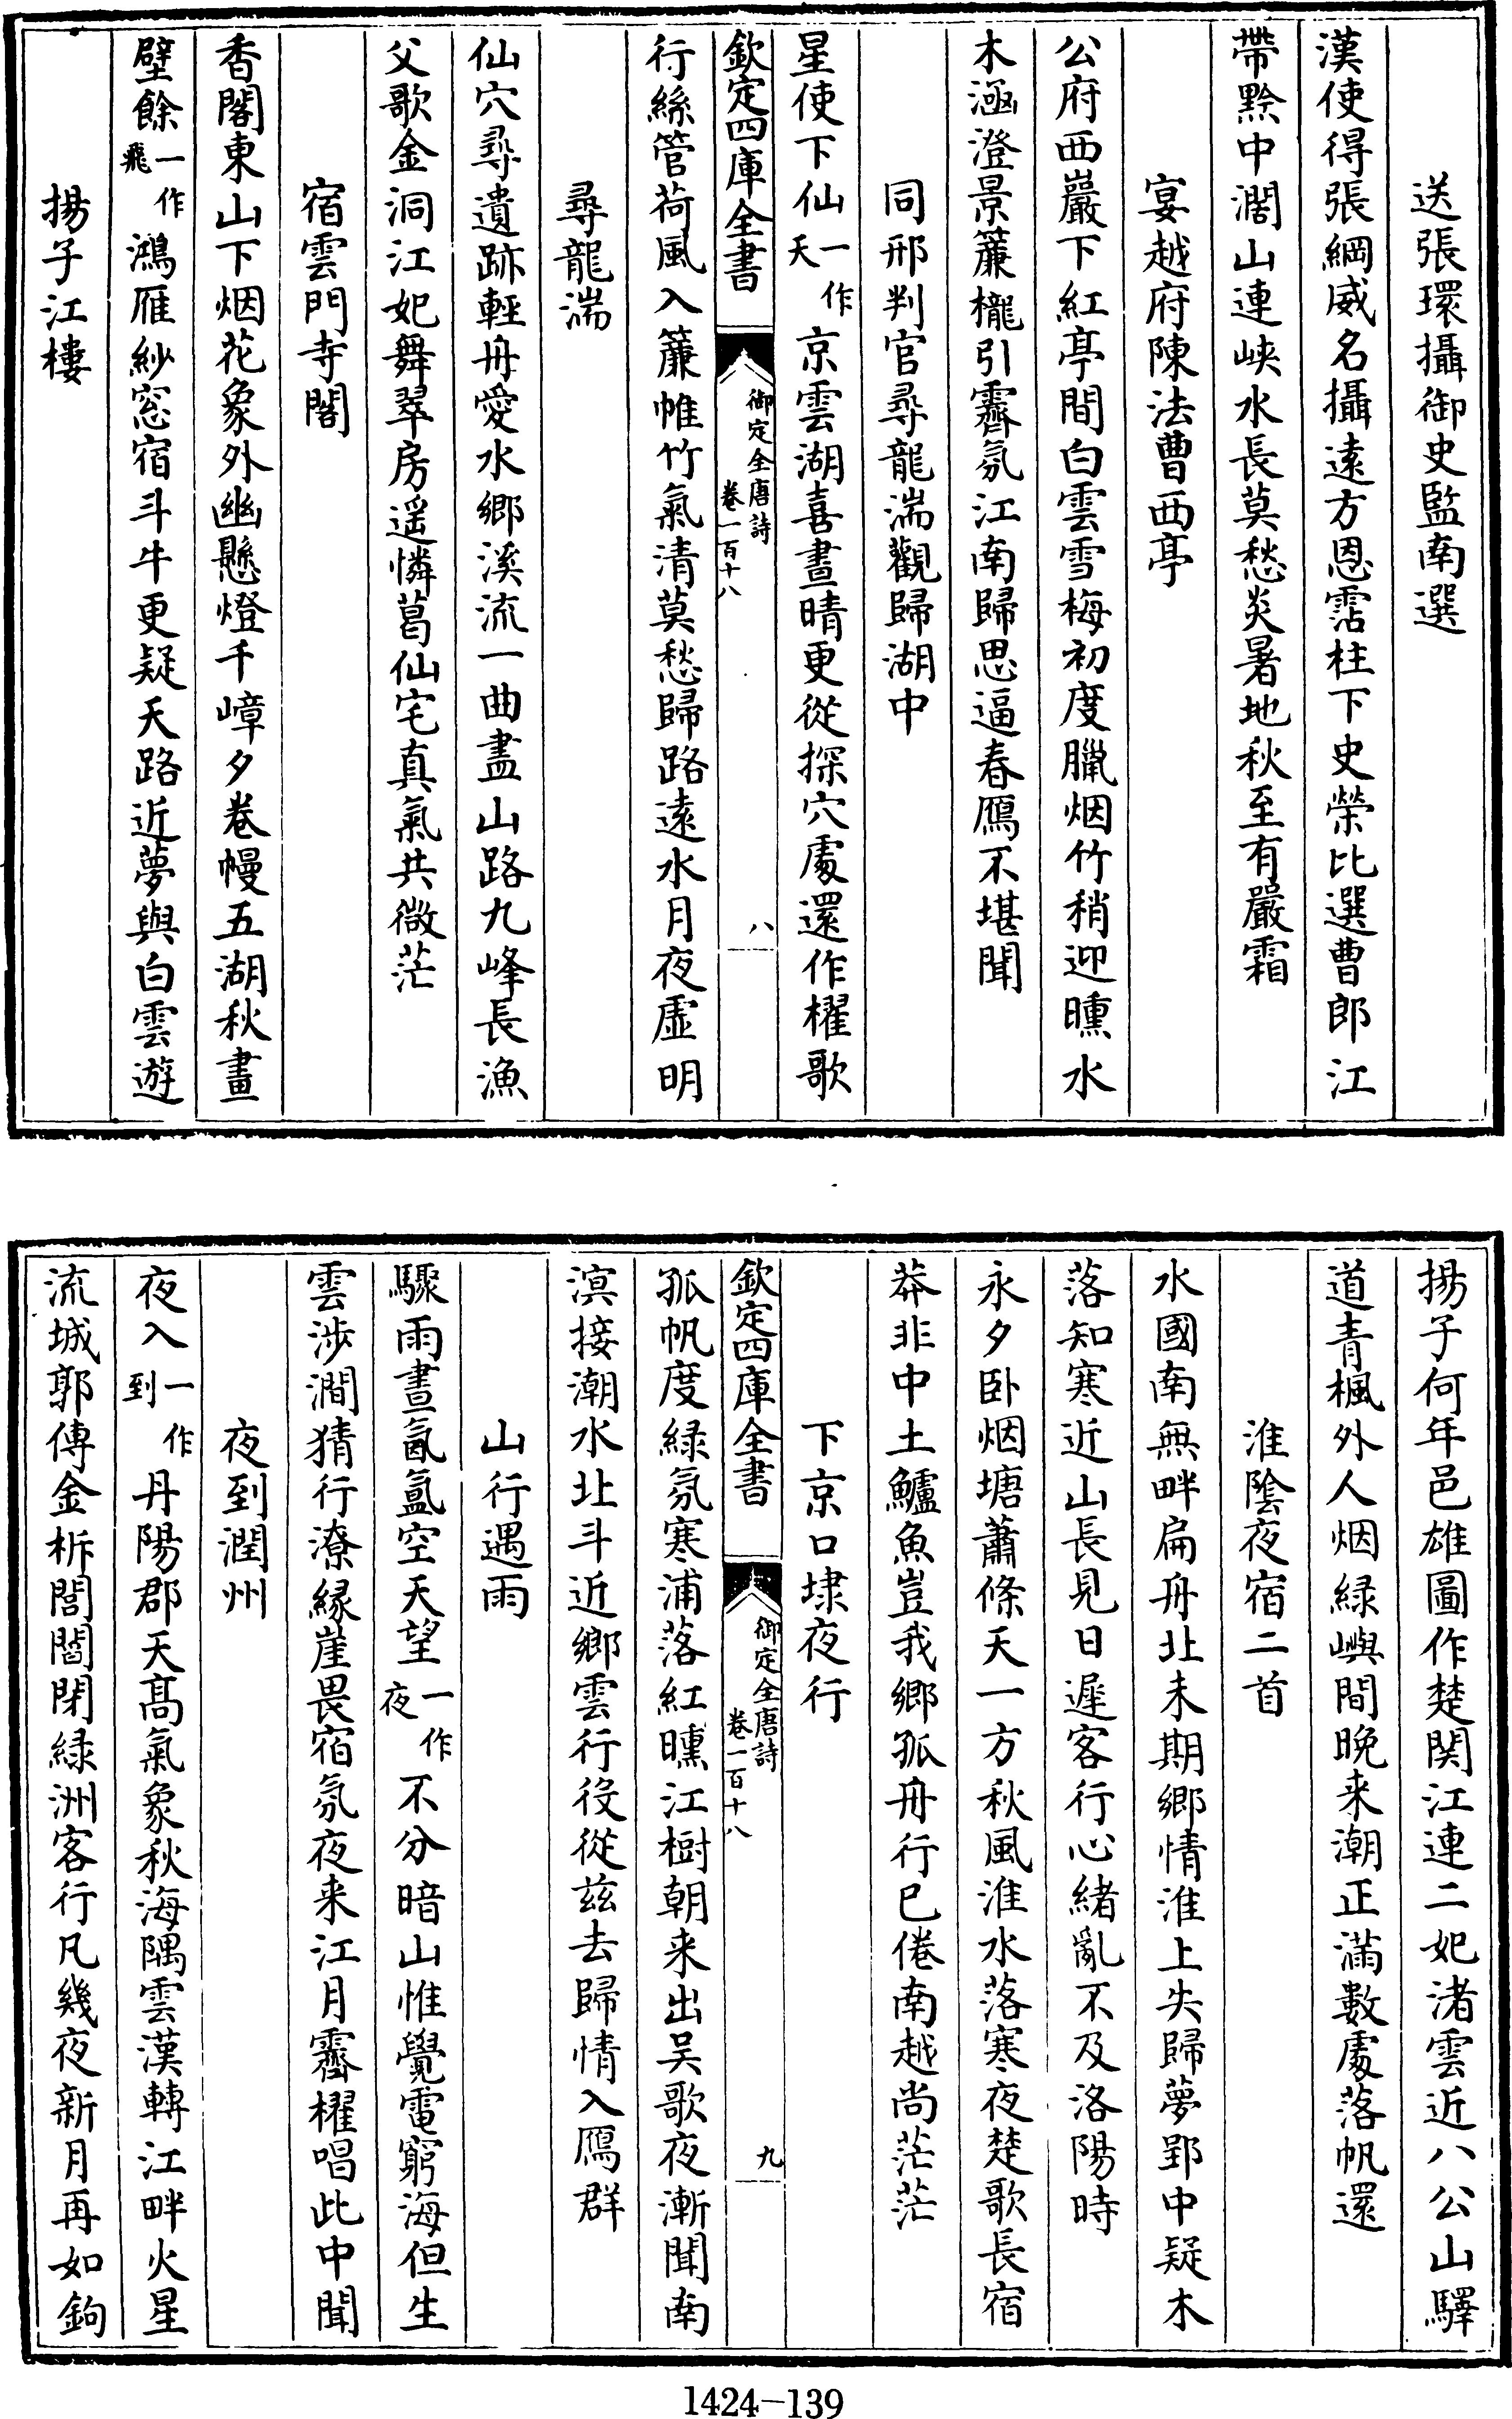 送張環攝御史監南選
漢使得張綱威名攝遠方恩霑柱下史榮比選曹郎江
帶黔中濶山連峽水長莫愁炎暑地秋至有嚴霜
宴越府陳法曹西亭
公府西巖下紅亭間白雲雪梅初度臘烟竹稍迎曛水
木涵澄景簾櫳引霽氛江南歸思逼春鴈不堪聞
同邢判官尋龍湍觀歸湖中
星使下仙一作天京雲湖喜晝晴更從探穴處還作櫂歌
欽定四庫全書
御定全唐詩
卷一百十八
八
行絲管荷風入簾帷竹氣清莫愁歸路遠水月夜虛明
尋龍湍
仙穴尋遺跡輕舟愛水鄉溪流一曲盡山路九峰長漁
父歌金洞江妃舞翠房遥憐葛仙宅真氣共微茫
宿雲門寺閣
香閣東山下烟花象外幽懸燈千嶂夕卷幔五湖秋畫
壁餘一作飛鴻雁紗窓宿斗牛更疑天路近夢與白雲遊
揚子江樓
揚子何年邑雄圖作楚関江連二妃渚雲近八公山驛
道青楓外人烟緑嶼間晚来潮正滿數處落帆還
淮陰夜宿二首
水國南無畔扁舟北未期鄉情淮上失歸夢郢中疑木
落知寒近山長見日遲客行心緒亂不及洛陽時
永夕卧烟塘蕭條天一方秋風淮水落寒夜楚歌長宿
莽非中土鱸魚豈我鄉孤舟行已倦南越尚茫茫
下京口埭夜行
孤帆度緑氛寒浦落紅曛江樹朝来出吴歌夜漸聞南
欽定四庫全書
御定全唐詩
卷一百十八
九
溟接潮水北斗近鄉雲行役從兹去歸情入鴈群
山行遇雨
驟雨晝氤氲空天望一作夜不分暗山惟覺電窮海但生
雲涉澗猜行潦縁崖畏宿氛夜来江月霽櫂唱此中聞
夜到潤州
夜入一作到丹陽郡天髙氣象秋海隅雲漢轉江畔火星
流城郭傳金柝閭閻閉緑洲客行凡幾夜新月再如鉤
1424-139